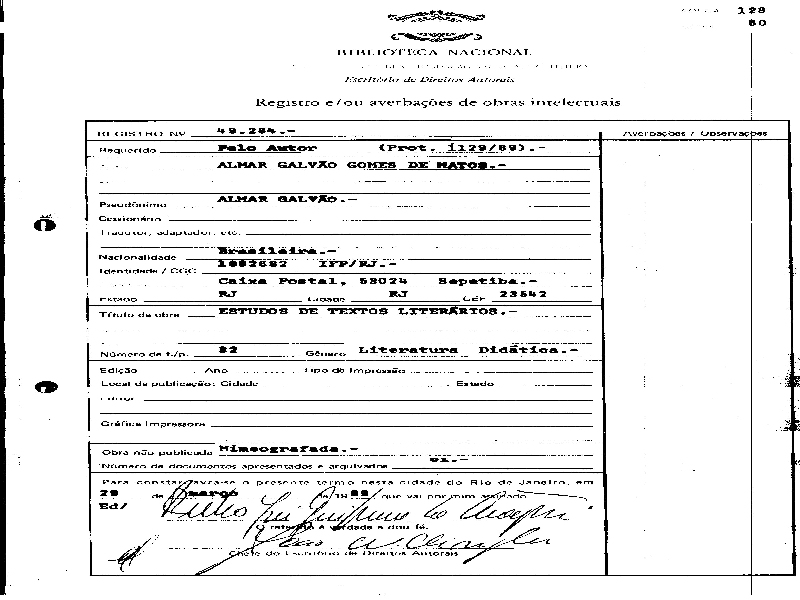 128
80
BIBLIOTECA NACIONAL
Escritório de Direitos Autorais
Registro e/ou averbações de obras intelectuais
REGISTRO Nº 49.284.-
Averbações / Observações
Requerido Pelo Autor (Prot. 1129/89).-
ALMAR GALVÃO GOMES DE MATOS.-
Pseudônimo ALMAR GALVÃO.-
Cessionário
Tradutor, adaptador, etc.
Nacionalidade Brasileira.-
Identidade / CGC 1882682 IFP/RJ.-
Caixa Postal, 53024 Sepetiba.-
Estado RJ Cidade RJ CEP 23542
Título da obra ESTUDOS DE TEXTOS LITERÁRIOS.-
Número de f./p. 82 Gênero Literatura Didática.-
Edição Ano Tipo de Impressão
Local da publicação: Cidade Estado
Editor
Gráfica Impressora
Obra não publicada Mimeografada.-
Número de documentos apresentados e arquivados 01.-
Para constar lavra-se o presente termo nesta cidade do Rio de Janeiro, em
29 de março de 19 89, que vai por mim assinado
Ed/
O referido é verdade e dou fé.
Chefe do Escritório de Direitos Autorais